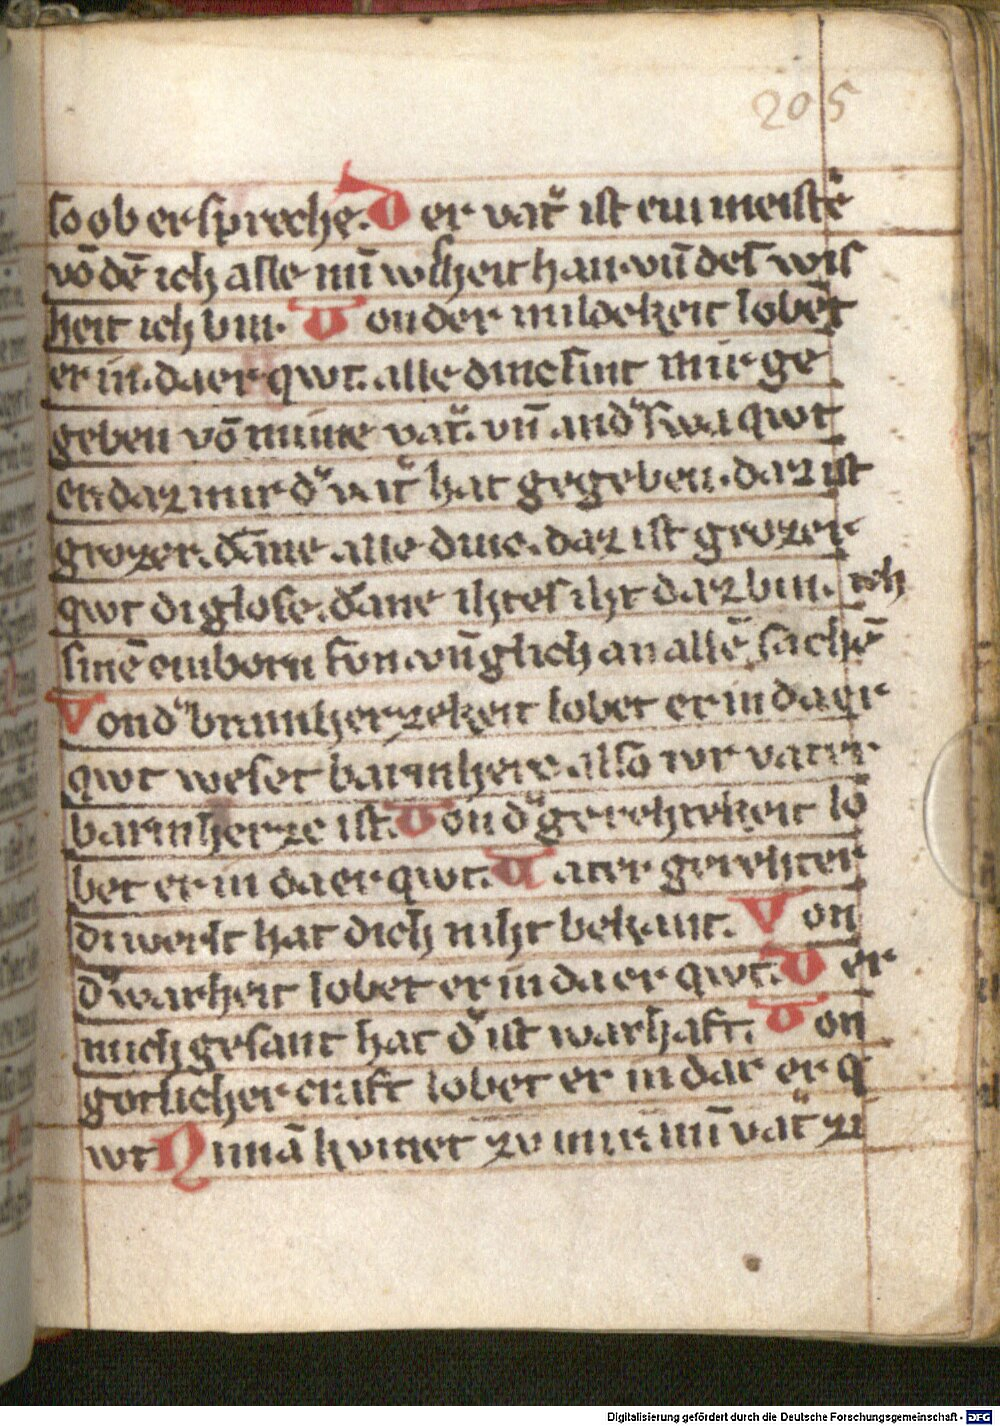 205
so ob er spreche. D er vat͛ ist ein meist͛
vō dē ich alle mī wisheit han. vn̄ des wis
heit ich bin. V on der mildekeit lobet
er in. da er qwt. alle dinc sint mir ge
geben vō mime vat͛. vn̄ and͛swa qwt
er. daz mir d͛ vat͛ hat gegeben. daz ist
grozer. dāne alle dinc. daz ist grozer
qwt di glose. dāne ihtes iht daz bin. ich
sinē einborn svn. vn̄ glich an allē sachē
V on d͛ barmherzekeit lobet er in da er
qwt weset barmherz. also wr vater
barmherze ist. V on d͛ gerehtekeit lo
bet er in da er qwt. V ater gerehter
di werlt hat dich niht bekant. V on
d͛ warheit lobet er in da er qwt. D er
mich gesant hat d͛ ist warhaft. V on
gotlicher craft lobet er in dar er q
wt N imā kvmet zv mir mī vat͛ zi
Digitalisierung gefördert durch die Deutsche Forschungsgemeinschaft - DFG